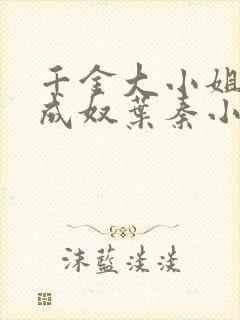 千金大小姐
成奴葉秦小
沫藍淡淡